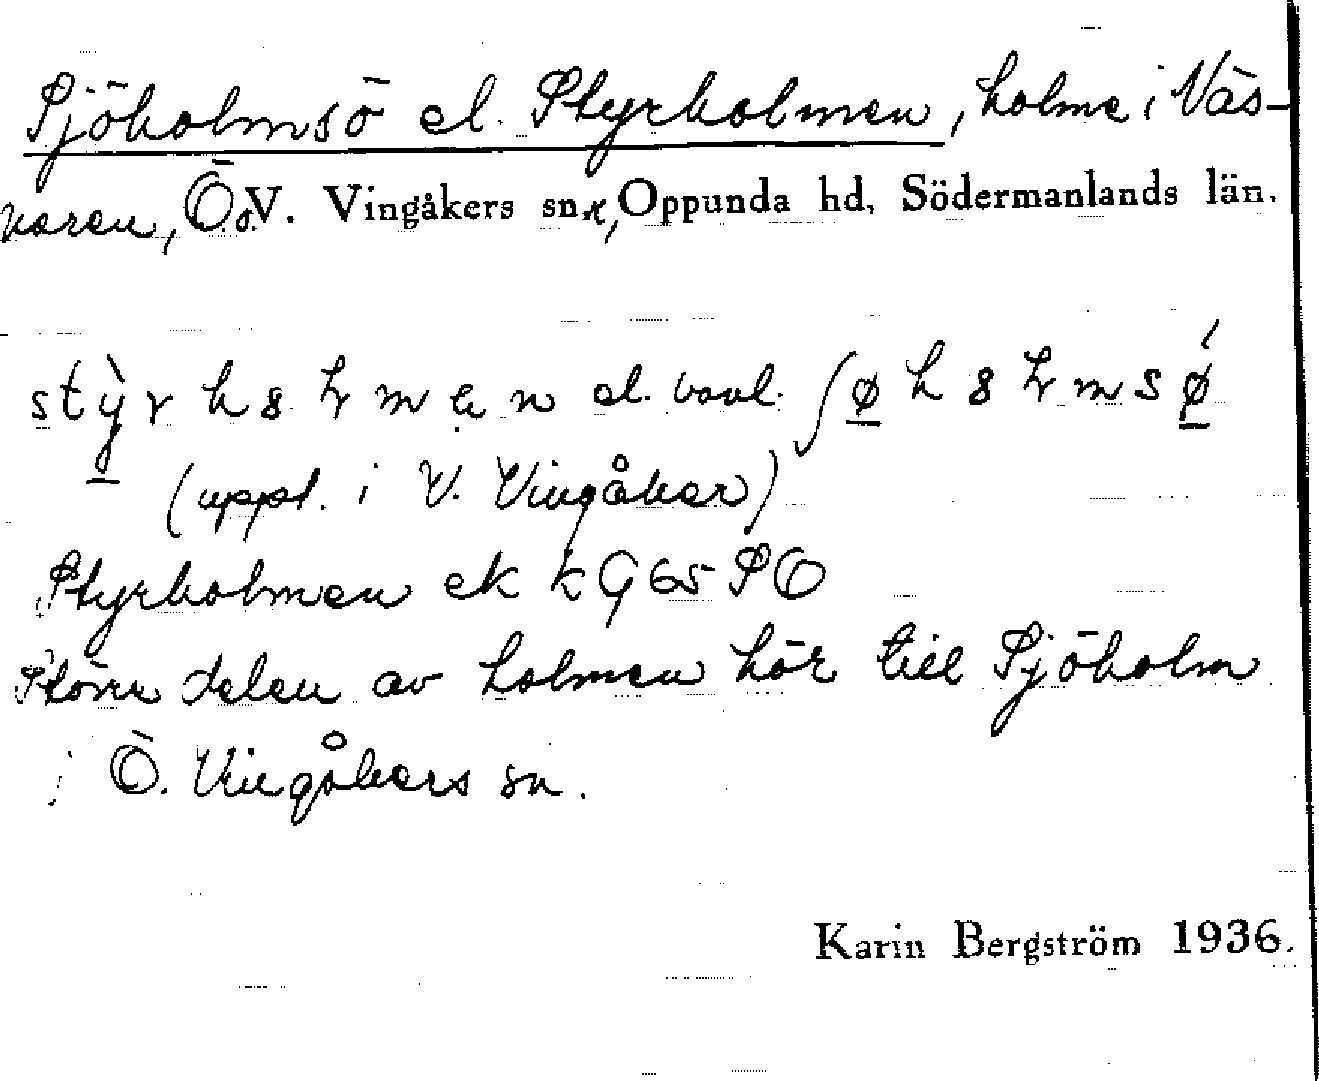 Sjöholmsö el. Styrholmen, holme i Väs-
naren, Ö.o.V. Vingåkers snr, Oppunda hd, Södermanlands län.
el. vanl.
(uppt. i V. Vingåker)
Styrholmen ek k G 65 SO
Större delen av holmen hör till Sjöholm
i Ö. Vingåkers sn.
Karin Bergström 1936.